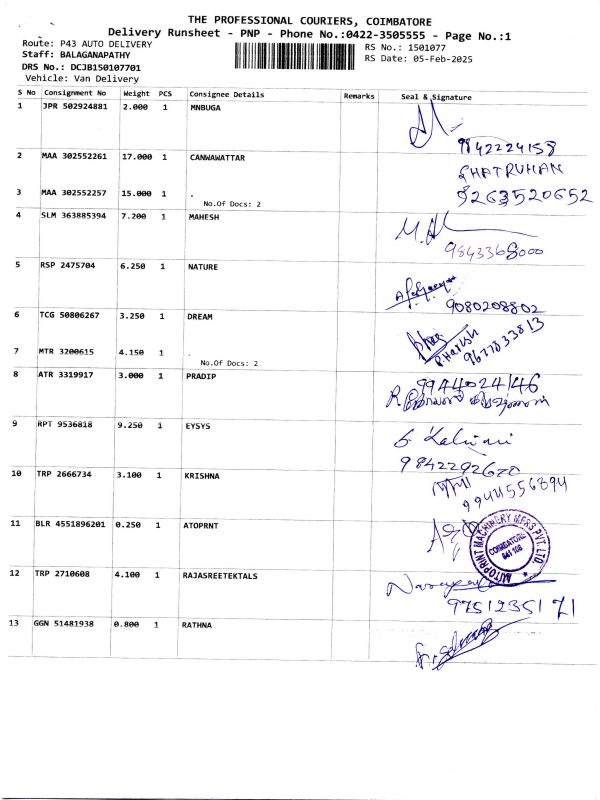 THE PROFESSIONAL COURIERS, COIMBATORE
Delivery Runsheet - PNP - Phone No.:0422-3505555 - Page No.:1
Route: P43 AUTO DELIVERY
RS No.: 1501077
Staff: BALAGANAPATHY
RS Date: 05-Feb-2025
DRS No.: DCJB150107701
Vehicle: Van Delivery
S No Consignment No Weight PCS Consignee Details Remarks Seal & Signature
1 JPR 502924881 2.000 1 MNBUGA
9842224158
2 MAA 302552261 17.000 1 CANWAWATTAR
SHATRUHAN
3 MAA 302552257 15.000 1 . 9263520652
No.Of Docs: 2
4 SLM 363885394 7.200 1 MAHESH
9843368000
5 RSP 2475704 6.250 1 NATURE
9080208802
6 TCG 50806267 3.250 1 DREAM
P. Harish
9677833813
7 MTR 3200615 4.150 1 .
No.Of Docs: 2
8 ATR 3319917 3.000 1 PRADIP
9944024146
9 RPT 9536818 9.250 1 EYSYS
9842292670
10 TRP 2666734 3.100 1 KRISHNA
9944556894
11 BLR 4551896201 0.250 1 ATOPRNT
AUTOPRINT MACHINERY MFRS PVT. LTD.
COIMBATORE
641 108
12 TRP 2710608 4.100 1 RAJASREETEKTALS
9751235171
13 GGN 51481938 0.800 1 RATHNA